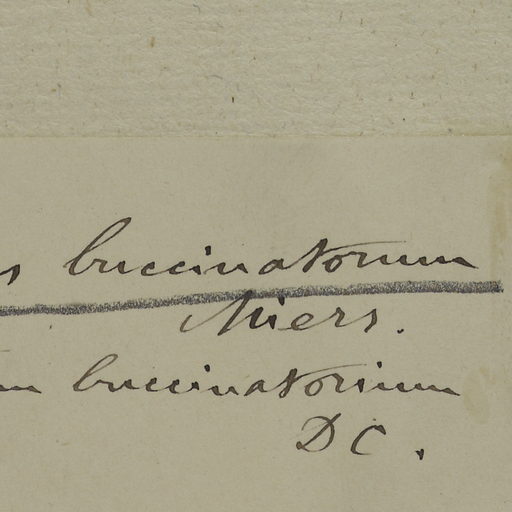 s buccinatorum
Miers.
m buccinatorium
DC.